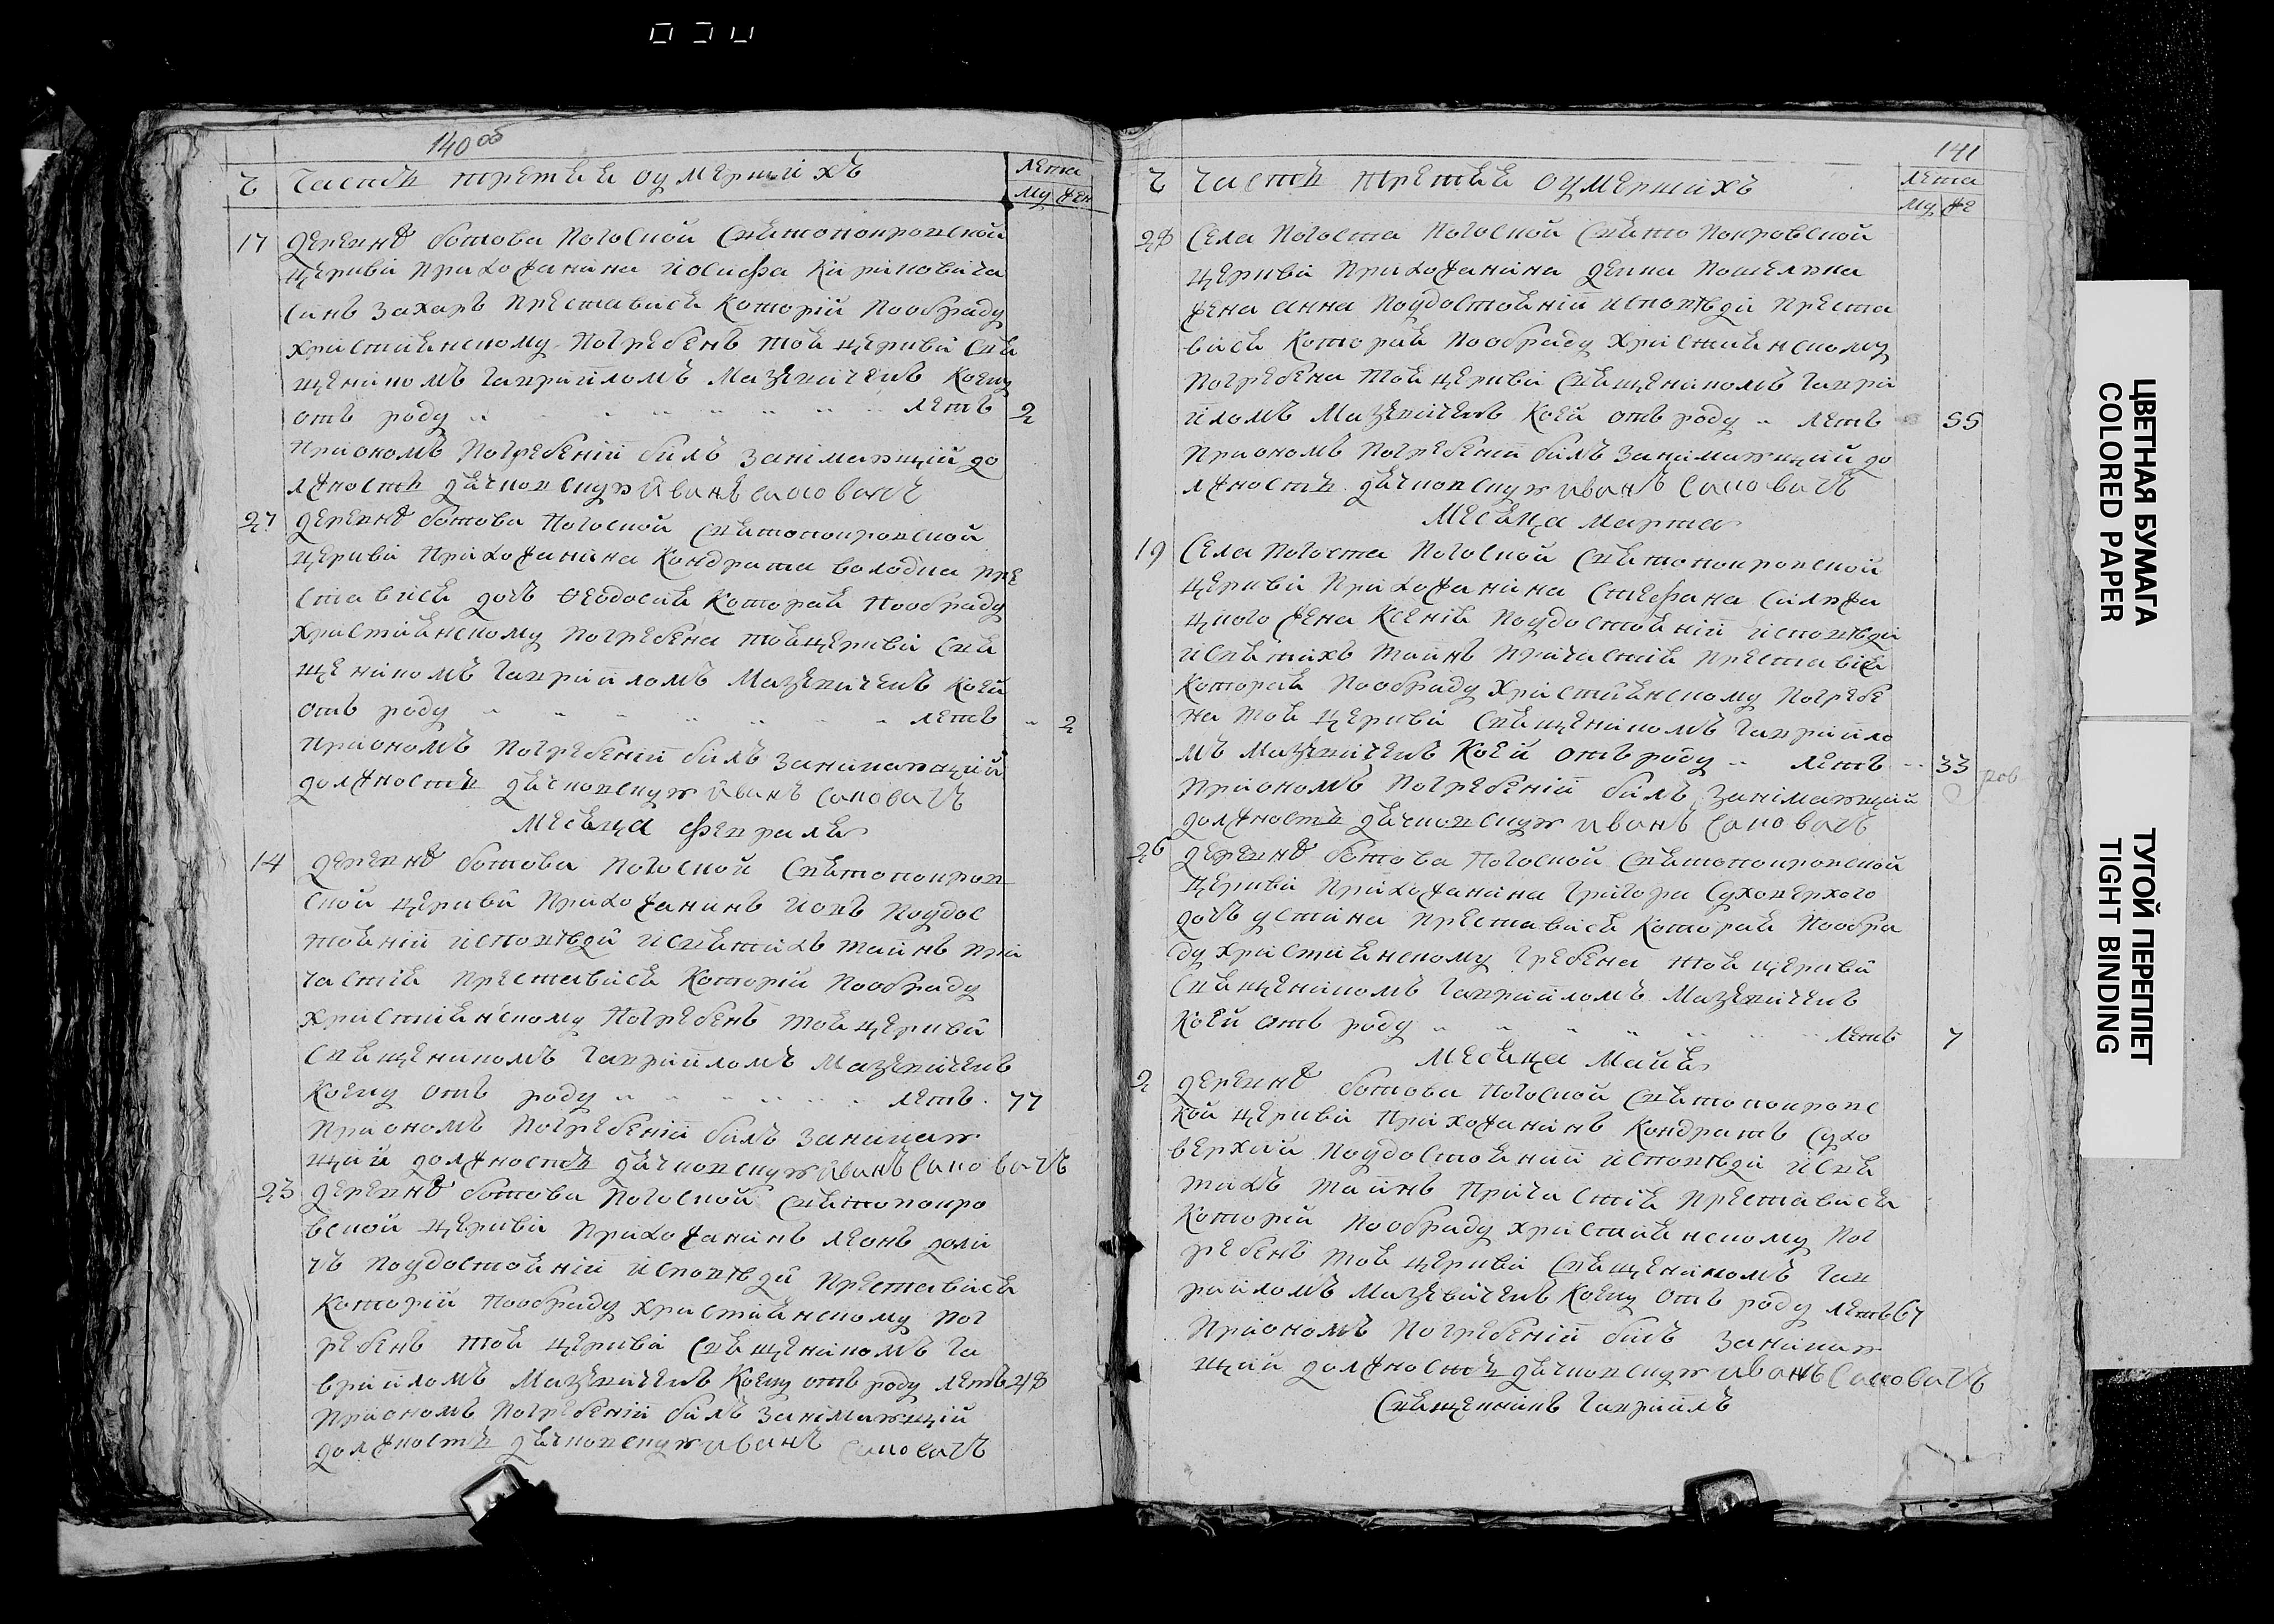 140 об
Ч Часть третья оумершихъ лета
му жен
17 деревнѣ ботова Погосной Святопокровской
церкви прихожанина иосифа Киріковича
Синъ Захаръ преставися Которій Пообраду
христианскому Погребенъ тоя церкви Свя
щеникомъ Гавриіломъ Мазкевичемъ Коему
отъ роду летъ 2
Приономъ Погребеніи билъ занімающій до
лжность дячковскую Иванъ Саковачъ
27 деревнѣ ботова Погосной Святопокровской
церкви Прихожанина Кондрата володка пре
ставися дочъ Феодосия Которая Пообраду
христіянскому погребена тоя церкви Свя
щеникомъ Гавриіломъ Мазкевичемъ Коей
отъ роду летъ 2
Приономъ погребеніи билъ занимающій
должность дячковскую Иванъ Саковачъ
Месяца Февраля
14 деревнѣ ботова погосной Святопокров
ской церкви Прихожанинъ Иовъ Поудос
тояніи исповѣди и святихъ таинъ при
частія преставися Которій Пообраду
християнскому Погребенъ тоя церкви
Священикомъ Гавриіломъ Мазкевичемъ
Коему отъ роду летъ 77
Приономъ Погребеніи билъ занимаю
щий должность дячковскую Иванъ Саковачъ
23 деревнѣ ботова погосной Святопокро
вской церкви Прихожанинъ леонъ доли
чъ поудостояніи исповѣди Преставися
Которій Пообраду християнскому Пог
ребенъ тоя церкви Священикомъ Га
вриіломъ Мазкевичемъ Коему отъ роду летъ 48
Приономъ Погребеніи билъ занімающій
должность дячковскую Иванъ Саковачъ
141
Ч Часть третья оумершихъ лета
му же
28 Села Погоста Погосной Святопокровской
церкви Прихожанина
жена анна Поудостояніи исповѣди преста
вися Которая Пообраду християнскому
Погребена тоя церкви Священикомъ Гаври
іломъ Мазкевичемъ Коей отъ роду летъ 55
Приономъ Погребеніи билъ занімающий до
лжность дячковскую Иванъ Саковачъ
Месяца марта
19 Села Погоста Погосной Святопокровской
церкви Прихожанина Стефана
жена Ксения Поудостояніи исповѣди
и святихъ таинъ Причастія преставися
Которая Пообраду християнскому Погребе
на тоя церкви Священикомъ Гавриіло
мъ Мазкевичемъ Коей отъ роду летъ 33
Приономъ Погребеніи билъ занімающий
должность дячковскую Иванъ Саковачъ
26 деревнѣ ботова Погосной Святопокровской
церкви Прихожанина Григора Суховерхого
дочъ устина преставися Которая Пообра
ду християнскому гребена тоя церкви
Священикомъ Гавриіломъ Мазкевичемъ
Коей отъ роду летъ 7
Месяца Майя
2 деревнѣ ботова Погосной Святопокровс
кой церкви Прихожанинъ Кондратъ Сухо
верхий Поудостояніи исповѣди и свя
тихъ таинъ Причастія преставися
Которій Пообраду християнскому Пог
ребенъ тоя церкви Священикомъ Гав
риіломъ Мазкевичемъ Коему отъ роду летъ 67
Приономъ Погребеніи билъ занимаю
щий должность дячковскую Иванъ Саковачъ
Священникъ Гавриілъ
ЦВЕТНАЯ БУМАГА
COLORED PAPER
ТУГОЙ ПЕРЕПЛЕТ
TIGHT BINDING